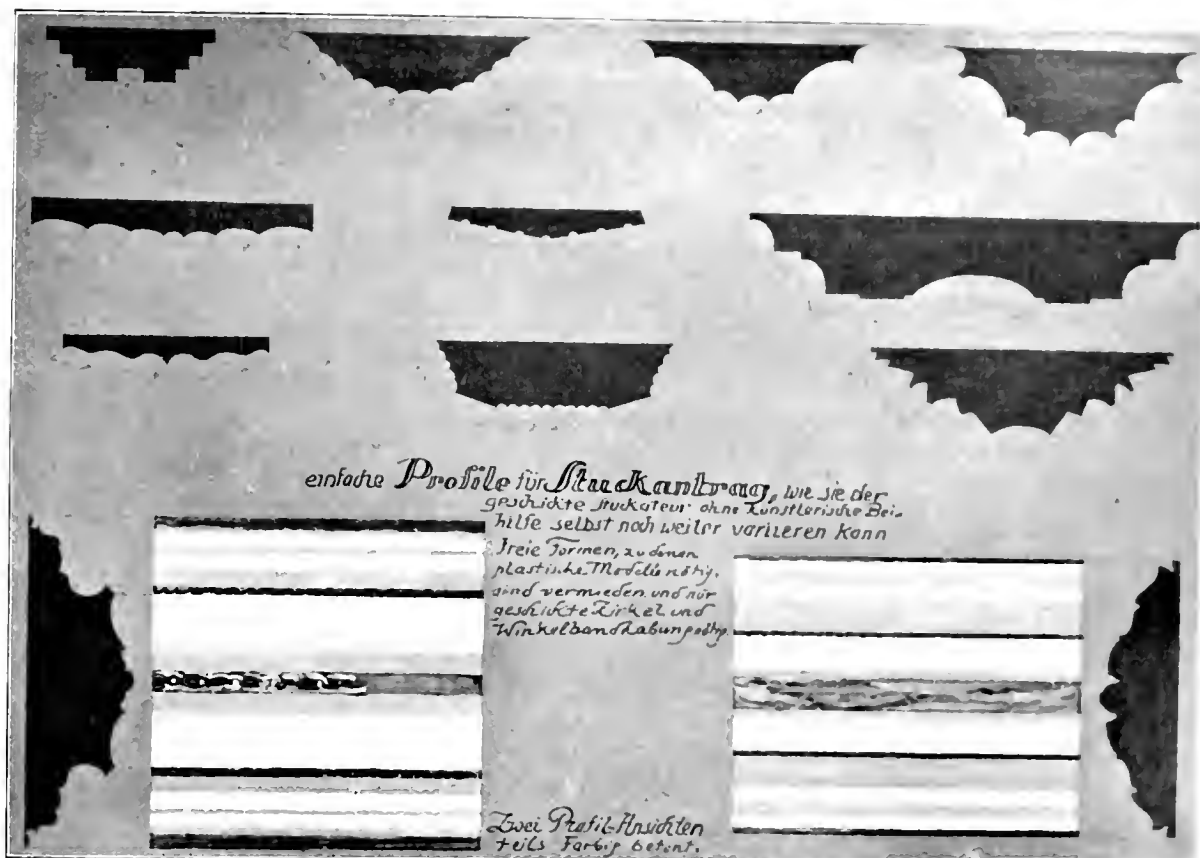 einfache Profile für Stuckantrag, wie sie der
geschickte Stuckateur ohne künstlerische Bei-
hilfe selbst noch weiter variieren kann
Freie Formen, zu denen
plastische Modelle nötig,
sind vermieden und nur
geschickte Zirkel und
Winkelhandhabung nötig.
Zwei Profil-Ansichten
teils farbig betont.